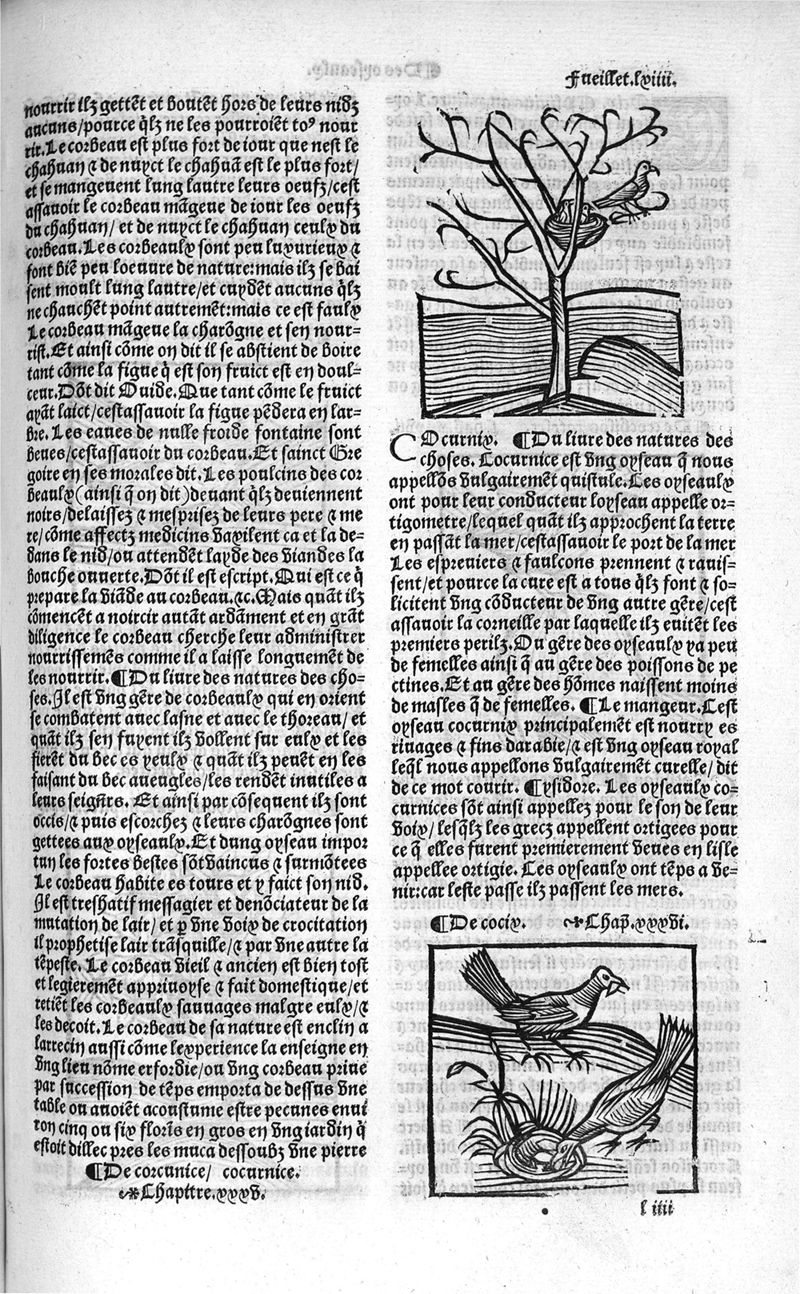 Fueillet.lxiiii.
nourrir ilz gettẽt et boutẽt hors de leurs nidz
aucuns/pource q̃lz ne les pourroiẽt toꝰ nour
rir. Le corbeau est plus fort de iour que nest le
chahuan ⁊ de nuyct le chahuã est le plus fort/
et se mangeuent lung lautre leurs oeufz/cest
assauoir le corbeau mãgeue de iour les oeufz
du chahuan/ et de nuyct le chahuan ceulx du
corbeau. Les corbeaulx sont peu luxurieux ⁊
font biẽ peu loeuure de nature:mais ilz se bai
sent moult lung lautre/et cuydẽt aucuns q̃lz
ne chauchẽt point autremẽt:mais ce est faulx
Le corbeau mãgeue la charõgne et sen nour-
rist. Et ainsi cõme on dit il se abstient de boire
tant cõme la figue q̃ est son fruict est en doul-
ceur. Dõt dit Ouide. Que tant cõme le fruict
ayãt laict/cestassauoir la figue pẽdera en lar-
bre. Les eaues de nulle froide fontaine sont
beues/cestassauoir du corbeau. Et sainct Gre
goire en ses morales dit. Les poulcins des cor
beaulx (ainsi q̃ on dit) deuant q̃lz deuiennent
noirs/delaissez ⁊ mesprisez de leurs pere ⁊ me
re/cõme affectz medicins baxilent ca et la de-
dans le nid/ou attendẽt layde des viandes la
bouche ouuerte. Dõt il est escript. Qui est ce q̃
prepare la viãde au corbeau.⁊c. Mais quãt ilz
cõmencẽt a noircir autãt ardãment et en grãt
diligence le corbeau cherche leur administrer
nourrissemẽs comme il a laisse longuemẽt de
les nourrir. ¶Du liure des natures des cho-
ses. Il est vng gẽre de corbeaulx qui en orient
se combatent auec lasne et auec le thoreau/ et
quãt ilz sen fuyent ilz vollent sur eulx et les
fierẽt du bec es yeulx ⁊ quãt ilz peuẽt en les
faisant du bec aueugles/les rendẽt inutiles a
leurs seigñrs. Et ainsi par cõsequent ilz sont
occis/⁊ puis escorchez ⁊ leurs charõgnes sont
gettees aux oyseaulx. Et dung oyseau impor
tun les fortes bestes sõt vaincus ⁊ surmõtees
Le corbeau habite es tours et y faict son nid.
Il est treshatif messagier et denõciateur de la
mutation de lair/ et p vne voix de crocitation
il prophetise lair trãsquille/⁊ par vne autre la
tẽpeste. Le corbeau vieil ⁊ ancien est bien tost
et legieremẽt appriuoyse ⁊ fait domestique/et
retiẽt les corbeaulx sauuages malgre eulx/⁊
les decoit. Le corbeau de sa nature est enclin a
larrecin aussi cõme lexperience la enseigne en
vng lieu nõme erfordie/ou vng corbeau priue
par succession de tẽps emporta de dessus vne
table ou auoiẽt acoustume estre pecunes enui
ron cinq ou six florĩs en gros en vng iardin q̃
estoit dillec pres les muca dessoubz vne pierre
¶De corcunice/ cocurnice.
Chapitre.xxxv.
COcurnix. ¶Du liure des natures des
choses. Cocurnice est vng oyseau q̃ nous
appellõs vulgairemẽt quistule. Ces oyseaulx
ont pour leur conducteur loyseau appelle or-
tigometre/lequel quãt ilz approchent la terre
en passãt la mer/cestassauoir le port de la mer
Les espreuiers ⁊ faulcons prennent ⁊ rauis-
sent/et pource la cure est a tous q̃lz font ⁊ so-
licitent vng cõducteur de vng autre gẽre/cest
assauoir la corneille par laquelle ilz euitẽt les
premiers perilz. Du gẽre des oyseaulx ya peu
de femelles ainsi q̃ au gẽre des poissons de pe
ctines. Et au gẽre des hõmes naissent moins
de masles q̃ de femelles. ¶Le mangeur. Cest
oyseau cocurnix principalemẽt est nourry es
riuages ⁊ fins darabie/⁊ est vng oyseau royal
leq̃l nous appellons vulgairemẽt curelle/ dit
de ce mot courir. ¶ysidore. Les oyseaulx co-
curnices sõt ainsi appellez pour le son de leur
voix/ lesq̃lz les grecz appellent ortigees pour
ce q̃ elles furent premierement veues en lisle
appellee ortigie. Ces oyseaulx ont tẽps a ve-
nir:car leste passe ilz passent les mers.
¶De cocix. Chap̃.xxxvi.
l iiii